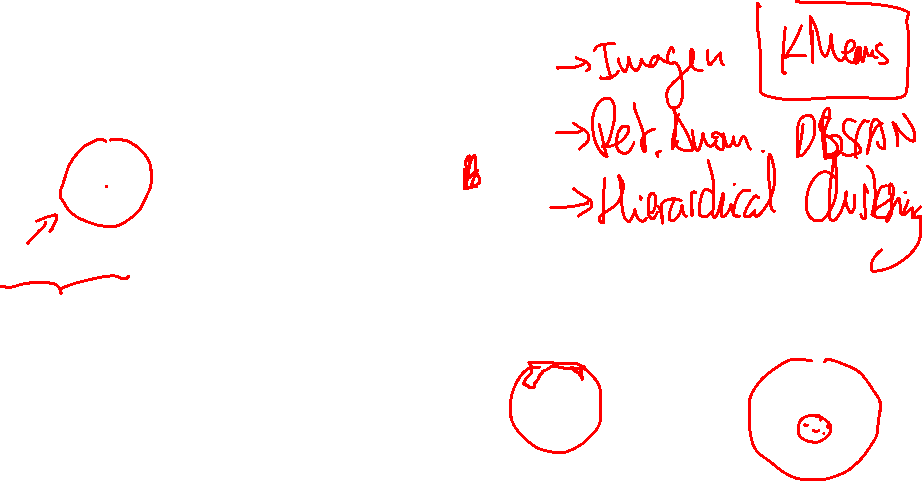 → Imagen KMeans
→ Det. Anom. DBSCAN
→ Hierardical Clustering